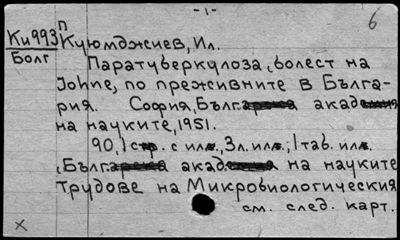 -1-
6
П
Ки993 Куюмджиев, Ил.
Болг
Паратуберкулоза, болест на
Johne, по преживните в Бълга-
рия. София, Бълг. акад.
на науките, 1951.
90, 1 стр. с ил., 3 л. ил., 1 таб. ил.
, Бълг. акад. на науките
Трудове на Микробиологическия
см. след. карт.
x